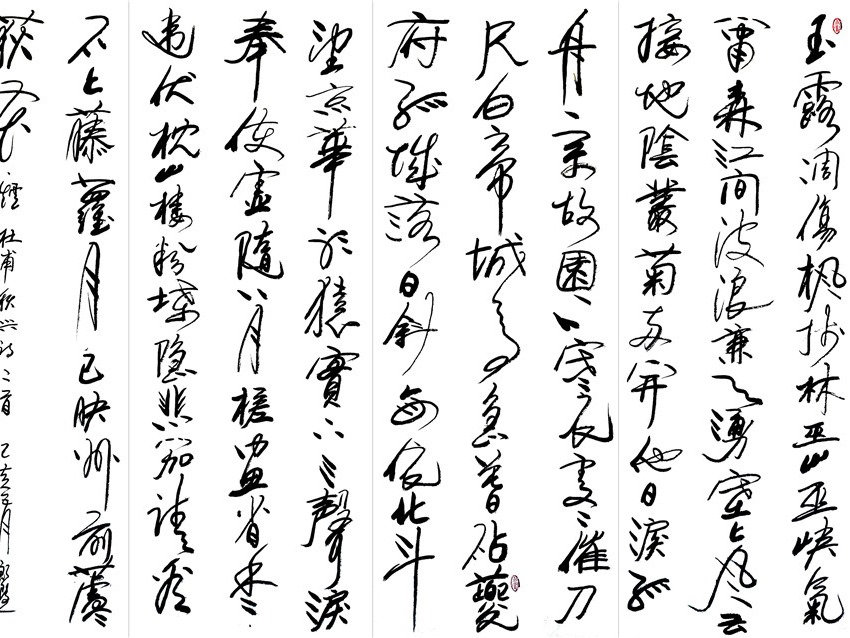 玉露凋傷楓樹林巫山巫峽氣
蕭森江間波浪兼天湧塞上風雲
接地陰叢菊兩開他日淚孤
舟一系故園心寒衣處〻催刀
尺白帝城高急暮砧夔
府孤城落日斜每依北斗
望京華聽猿實下三聲淚
奉使虛隨八月槎畫省香爐
違伏枕山樓粉堞隱悲笳請看
石上藤蘿月已映洲前蘆
荻花 杜甫秋興詩二首